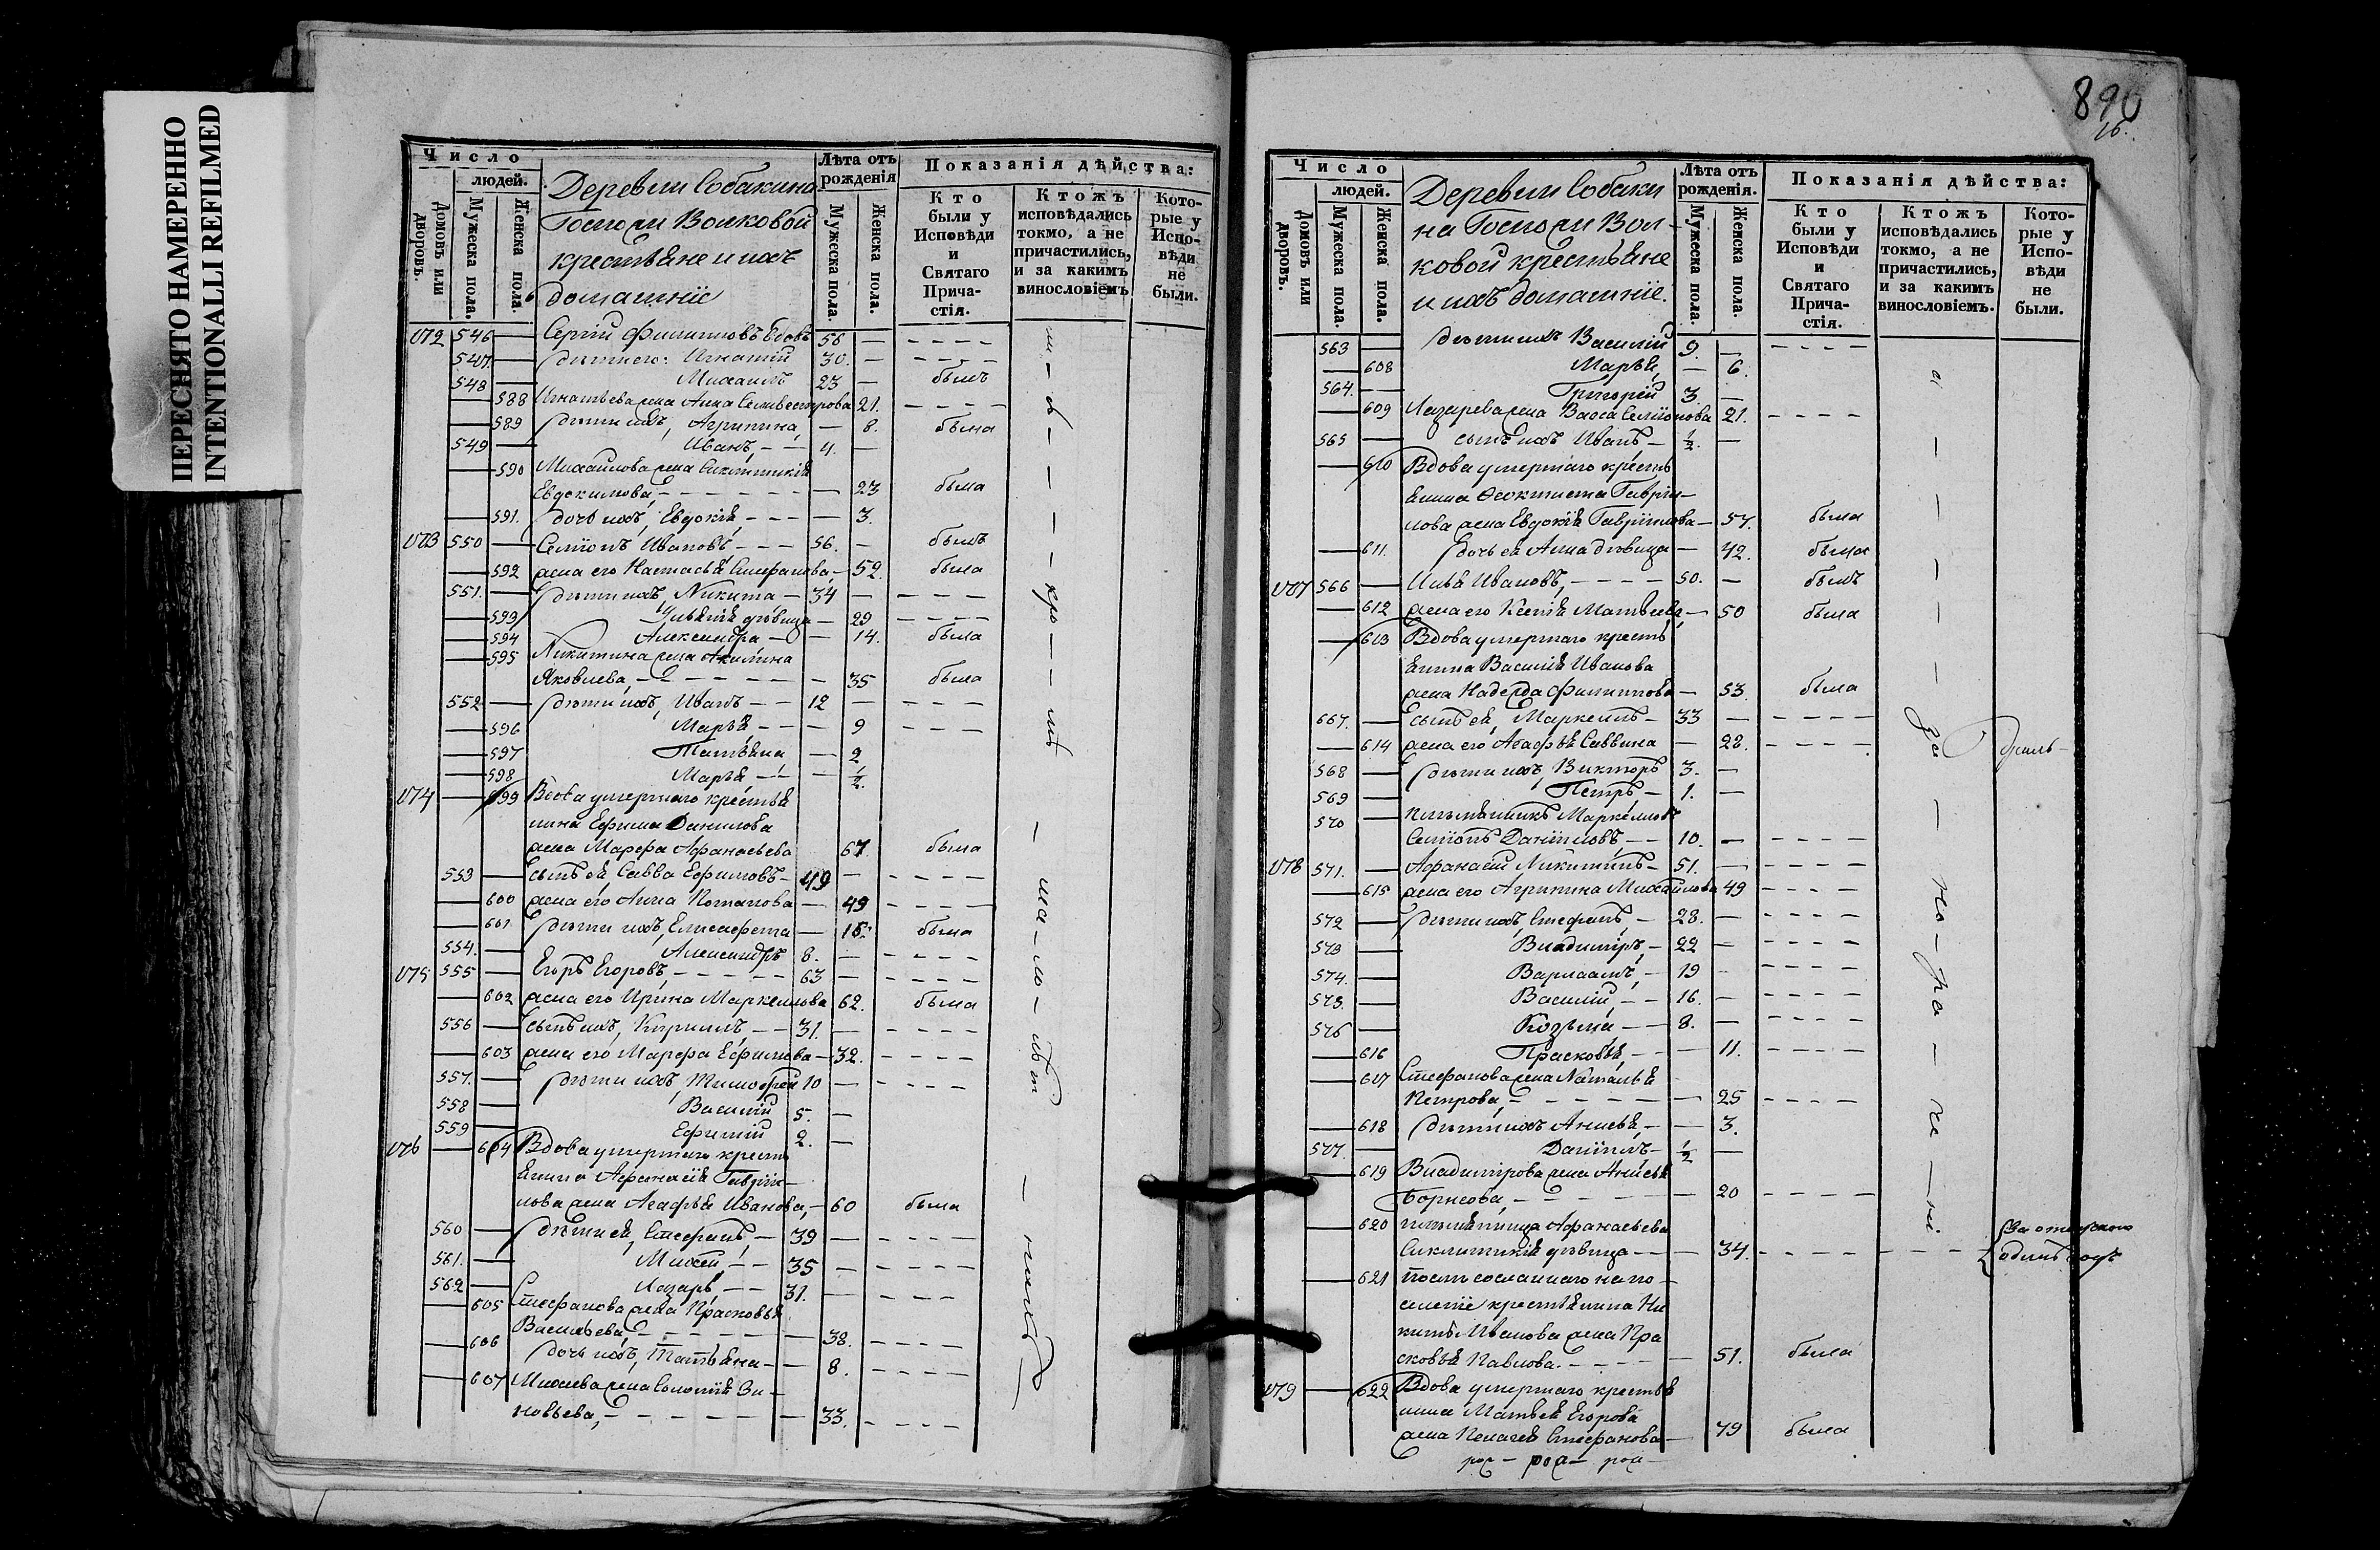 ПЕРЕСНЯТО НАМЕРЕННО
INTENTIONALLI REFILMED
Число
людей.
Домовъ или дворовъ.
Мужеска пола.
Женска пола.
Деревни Собакина
Госпожи Волковой
крестьяне и ихъ
домашніе
Лѣта отъ рожденія
Мужеска пола.
Женска пола.
Показанія дѣйства:
Кто были у Исповѣди и Святаго Прича-стія.
Ктожъ исповѣдались токмо, а не причастились, и за какимъ винословіемъ
Кото-рые у Испо-вѣди не были.
172 546 — Сергій Филипповъ вдовъ 56 — — — — —
547. — дѣти его: Игнатій 30. — — — — —
548 — Михаилъ 23 — былъ
— 588 Игнатьева жена Анна Селивестрова 21. — — — —
— 589 дѣти ихъ, Агрипина, — 8. была
549 — Иванъ, — — 4. —
— 590 Михайлова жена Синклитикія
Евдокимова, — — — — — — 23 была
— 591. дочь ихъ, Евдокія, — — — — 3.
173 550 — Семіонъ Ивановъ — — — 56. — былъ
— 592 жена его Настасья Стефанова, — 52. была
551. — дѣти ихъ, Никита — 34 — — — —
— 593 Ульянія дѣвица — 29 — — — —
— 594 Александра — — 14. была
— 595 Никитина жена Акилина
Яковлева, — — — — — — 35 была
552 — дѣти ихъ, Иванъ — — 12 — — — —
— 596 Марья — — — 9 — — —
— 597 Татьяна — 2
— 598 Марья — — — 1/2.
174 — 599 Вдова умершаго крестья
нина Ефима Данилова
жена Марфа Афанасьева 67 была
553 — сынъ ея, Савва Ефимовъ — 49 — — — — —
— 600 жена его Анна Потапова — 49 — — — —
— 601 дѣти ихъ, Елисавета — 15. была
554. — Александръ 8. — — — — —
175 555 — Егоръ Егоровъ, — — — — — 63 — — — — —
— 602 жена его Ирина Маркеллова 62. была
556 — сынъ ихъ, Кириллъ, — — 31. — — — — —
— 603 жена его Марфа Ефимова — 32. — — — —
557. — дѣти ихъ, Тимофей 10 — — — — —
558 — Василій 5. —
559 — Ефимій 2. —
176 — 604 Вдова умершаго кресть
янина Афанасія Гаврии—
лова жена Агафья Иванова, — 60 была
560 — дѣти ея, Стефанъ, — 39 — — — — —
561. — Михей, — — 35 — — — — —
562 — Лазарь — — 31. — — — —
— 605 Стефанова жена Прасковья
Васильева, — — — — — — 38. — — — —
— 606 дочь ихъ, Татьяна — — 8. — — — —
— 607 Михеева жена Соломія Зи—
новьева, — — — — — — 33. — — — —
890
16.
Число
людей.
Домовъ или дворовъ.
Мужеска пола.
Женска пола.
Деревни Собаки
на Госпожи Вол—
ковой крестьяне
и ихъ домашніе.
Лѣта отъ рожденія.
Мужеска пола.
Женска пола.
Показанія дѣйства:
Кто были у Исповѣди и Святаго Прича-стія.
Ктожъ исповѣдались токмо, а не причастились, и за какимъ винословіемъ.
Кото-рые у Испо-вѣди не были.
563 — дѣти ихъ Василій 9. — — — — —
— 608 Марья, — 6.
564. — Григорій 3. —
— 609 Лазарева жена Васса Семіонова 21. — — — —
565 — сынъ ихъ Иванъ — 1/2. —
— 610 Вдова умершаго кресть
янина Ѳеоктиста Гаврии—
лова жена Евдокія Гавриилова — 57. была
— 611. дочь ея Анна дѣвица — 42. была
177 566 — Илья Ивановъ, — — — — 50. — былъ
— 612 жена его Ксенія Матвеева, — 50 была
— 613 Вдова умершаго кресть
янина Василія Иванова
жена Надежда Филиппова — 53. была
567. — сынъ ея, Маркеллъ — 33 — — — — —
— 614 жена его Агафья Саввина — 28. — — — —
568 — дѣти ихъ, Викторъ 3. —
569 — Петръ — 1. —
570 — племянникъ Маркелловъ
Семіонъ Даниловъ, — — 10. — — — — —
178 571. — Афанасій Никитинъ — 51. — — — — —
— 615 жена его Агрипина Михайлова 49 — — — —
572 — дѣти ихъ, Стефанъ, — 28. — — — — —
573 — Владиміръ, — 22 — — — — —
574. — Варлаамъ, — 19 — — — — —
575. — Василій, — — 16. — — — — —
576 — Козьма — — 8. — — — — —
— 616 Прасковья, — — 11. — — — —
— 617 Стефанова жена Наталья
Петрова, — — — — — — 25 — — — —
— 618 дѣти ихъ Анисья, — — 3.
577. — Даніилъ — 1/2 —
— 619 Владимірова жена Анисья
Борисова, — — — — — — 20 — — — —
— 620 племянница Афанасьева
Синклитикія дѣвица — — — 34. — — — — — — —
— 621 посль сосланнаго на по—
селеніе крестьянина Ни
киты Иванова жена Пра
сковья Павлова. — — — — — 51. была
179 — 622 Вдова умершаго крестья
нина Матвея Егорова
жена Пелагея Стефанова — 79 была